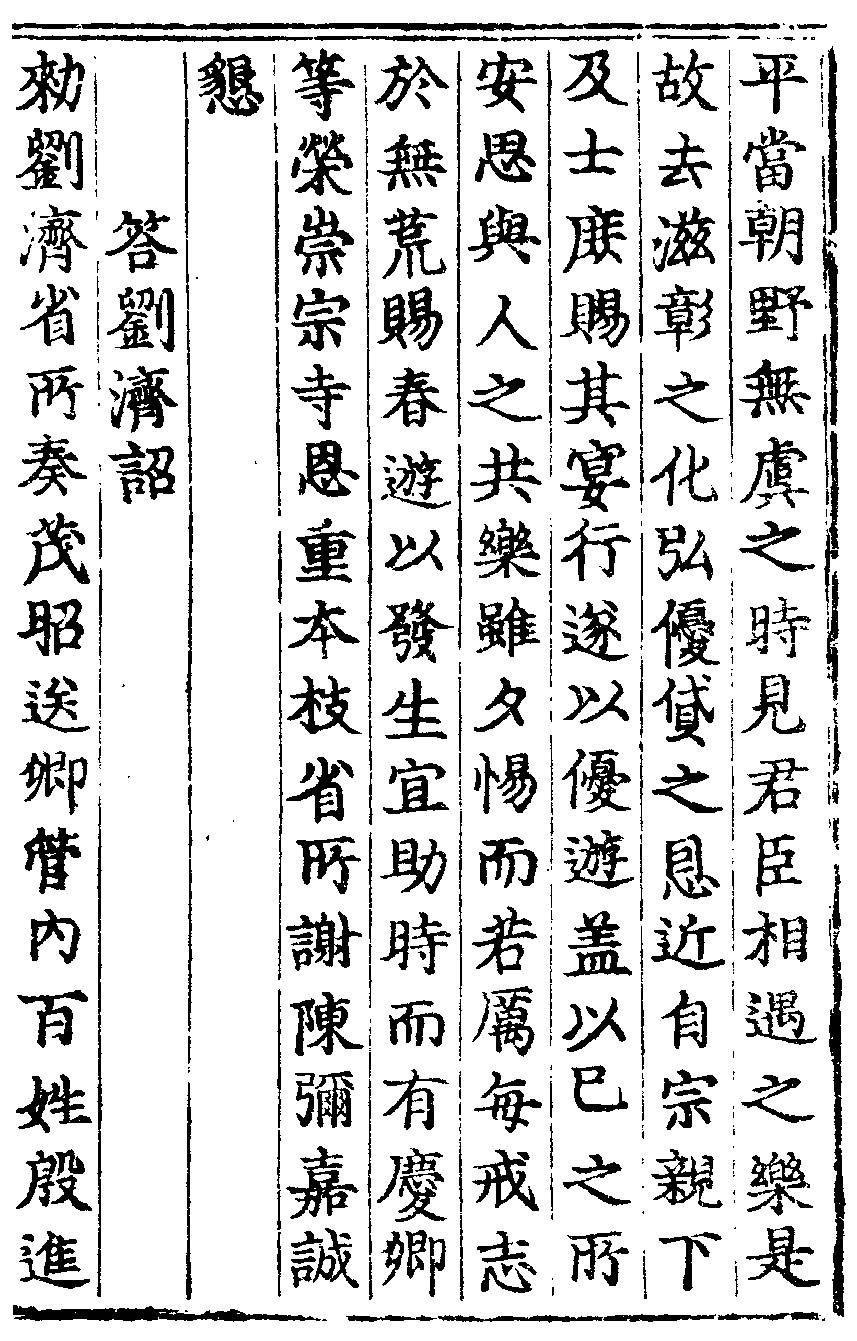 平當朝野無虞之時見君臣相遇之樂是
故去滋彰之化弘優貸之恩近自宗親下
及士庶賜其宴行遂以優遊盖以已之所
安思與人之共樂雖夕惕而若厲每戒志
於無荒賜春遊以發生宜助時而有慶卿
等榮崇宗寺恩重本枝省所謝陳彌嘉誠
懇
答劉濟詔
勑劉濟省所奏茂昭送卿管內百姓殷進